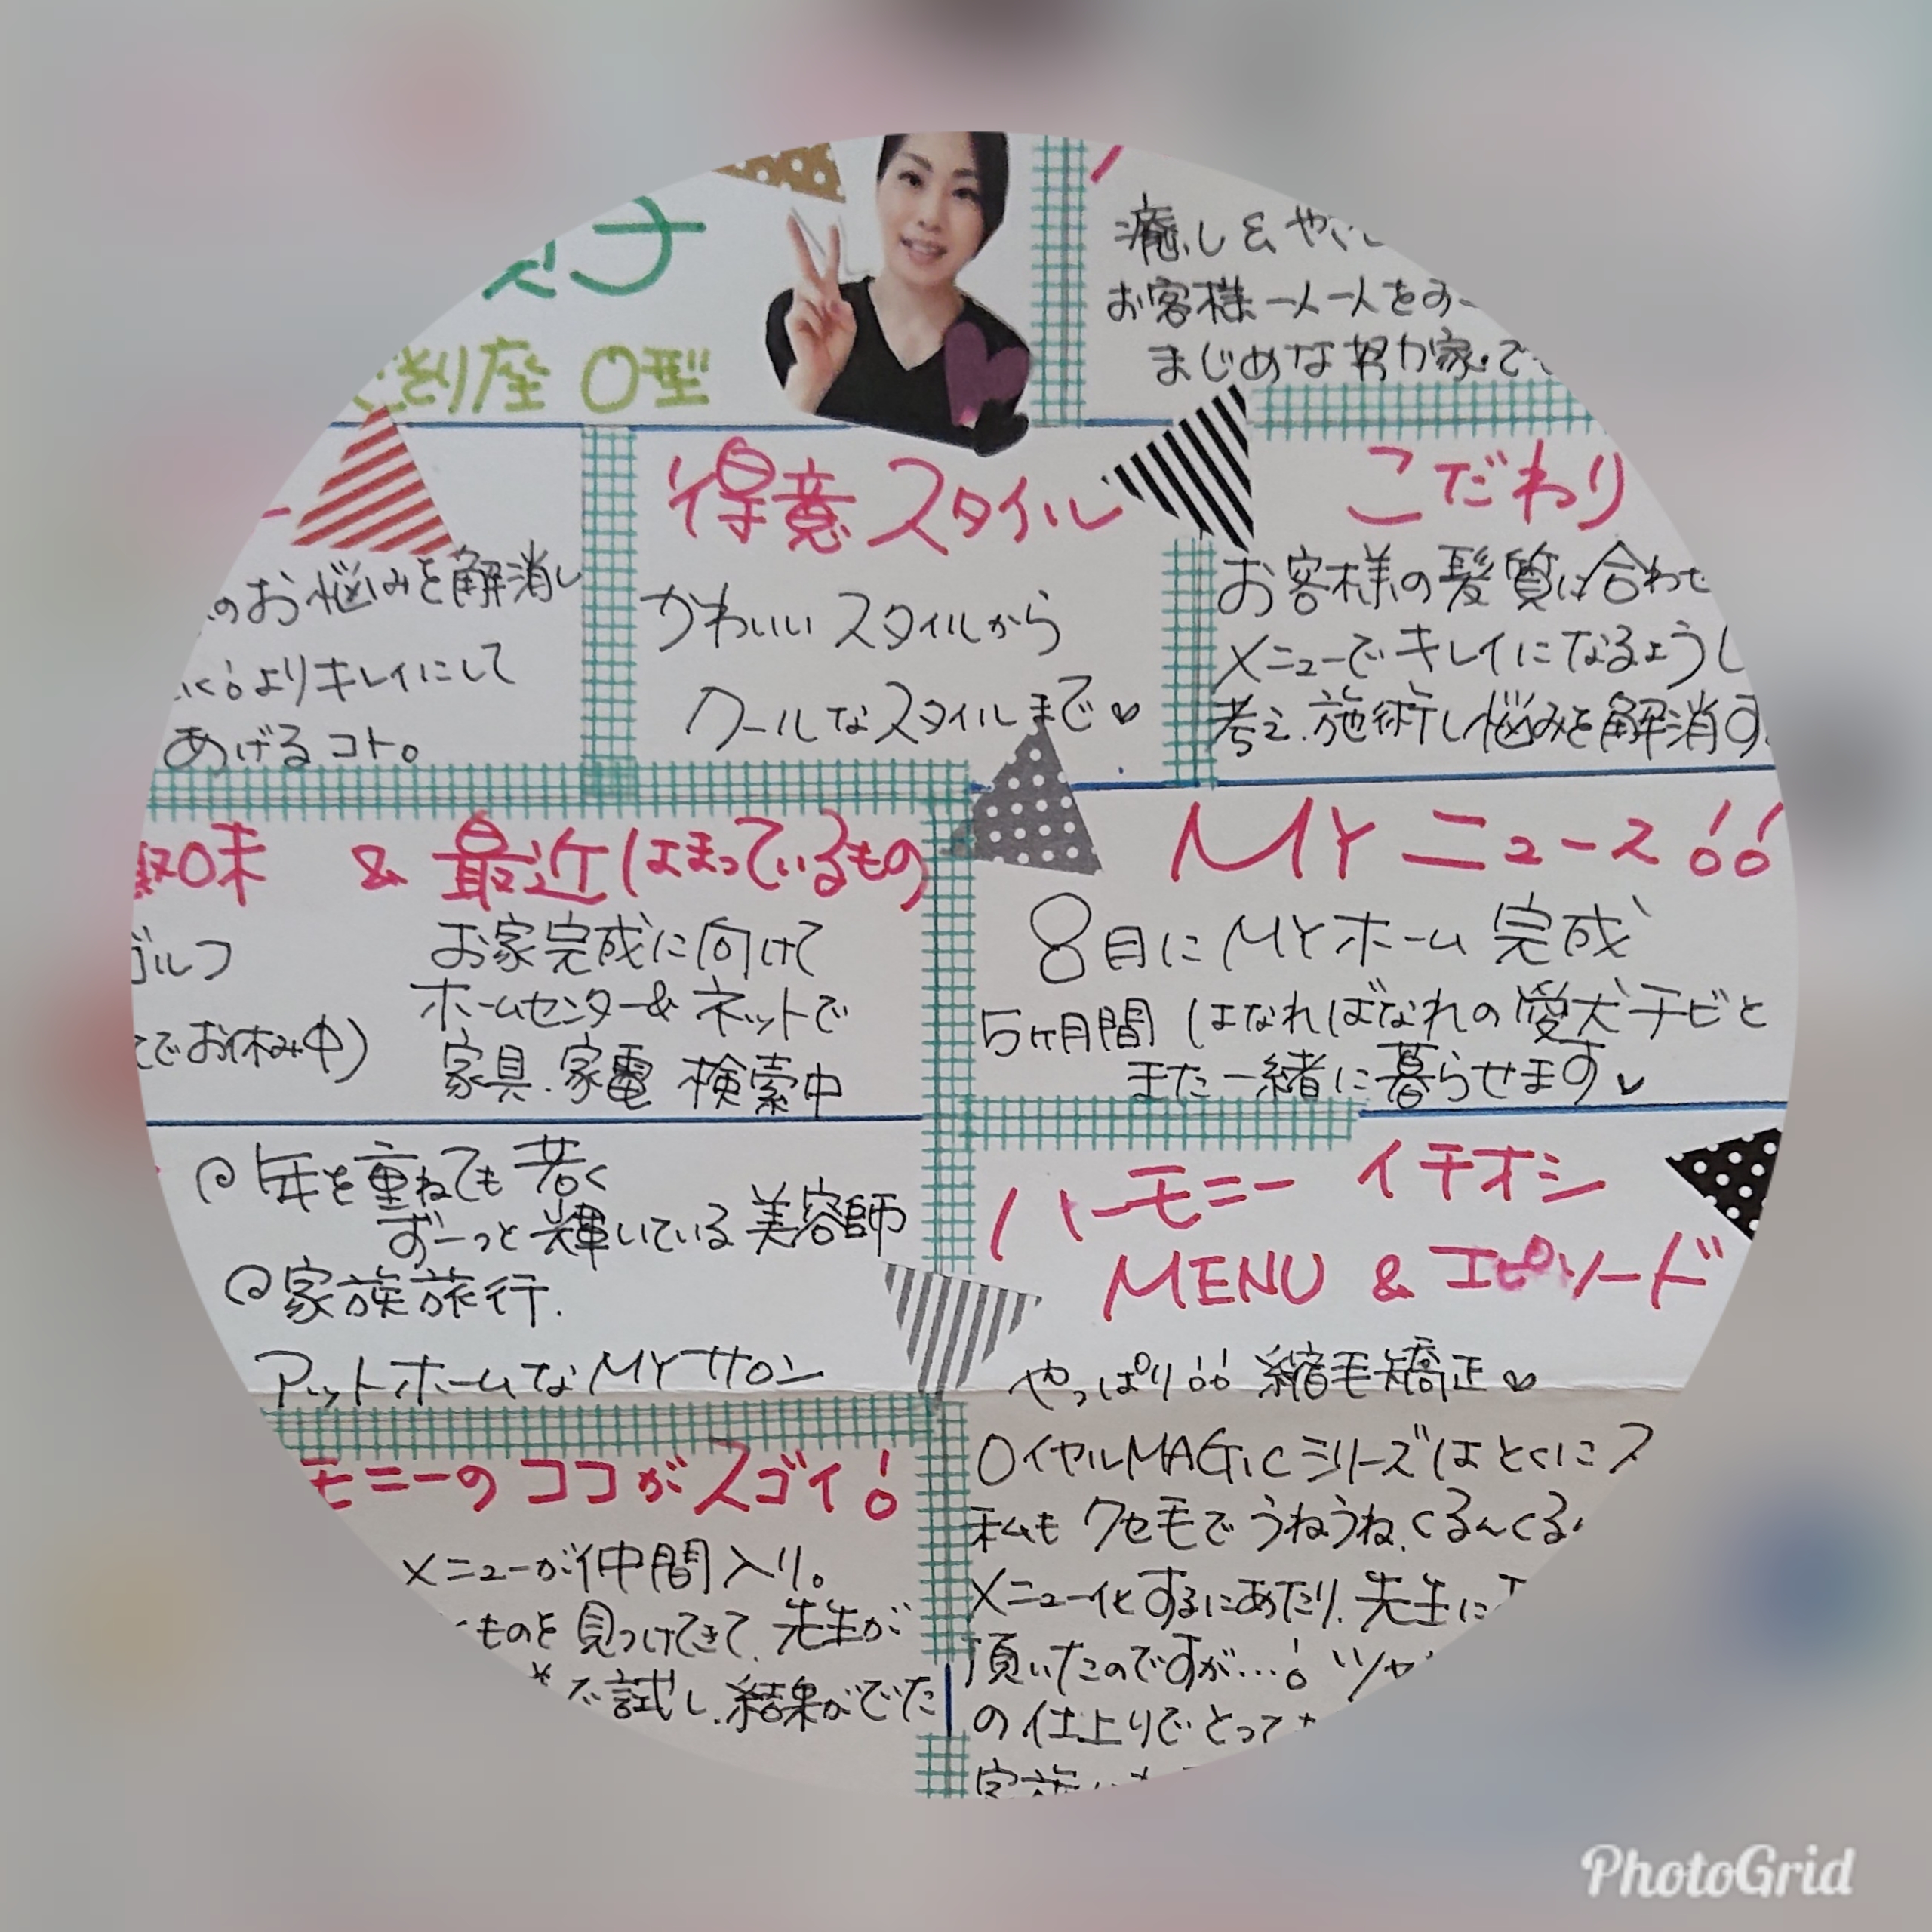 子
ぎり座 O型
癒し&や
お客様一人一人を
まじめな努力家で
のお悩みを解消し
よりキレイにして
あげるコト。
得意スタイル
かわいいスタイルから
クールなスタイルまで♡
こだわり
お客様の髪質に合わせ
メニューでキレイになるようし
考え、施術し悩みを解消す
味 & 最近はまっているもの
ゴルフ
でお休み中)
お家完成に向けて
ホームセンター&ネットで
家具.家電 検索中
MYニュース!!
8月にMYホーム完成
5ヶ月間はなればなれの愛犬チビと
また一緒に暮らせます♡
年を重ねても若く
ずーっと輝いている美容師
家族旅行.
アットホームなMYサロン
ハーモニー イチオシ
MENU & エピソード
やっぱり!!縮毛矯正♡
ロイヤルMAGicシリーズはとくにス
私もクセ毛でうねうね、くるんくる
メニュー化するにあたり、先生に
頂いたのですが…!ツヤ
の仕上りでとって
家族
モニーのココがスゴイ!
メニューが仲間入り。
ものを見つけてきて、先生が
で試し、結果がでた
PhotoGrid